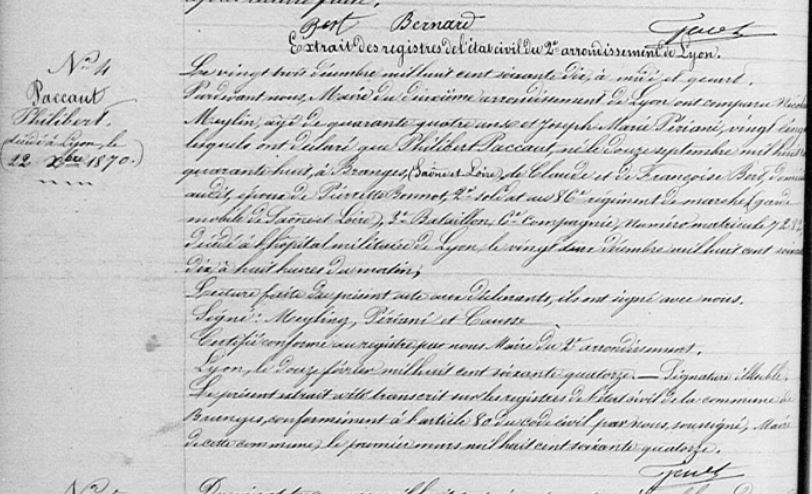 Bert Bernard
Extrait des registres de l'état civil du 2e arrondissement de Lyon.
No 4
Paccaut
Philibert.
décédé à Lyon, le
22 Xbre 1870.)
Le vingt trois décembre mil huit cent soixante dix, à midi et quart.
Pardevant nous, Maire du deuxième arrondissement de Lyon ont comparu
Meyling, âgé de quarante quatre ans et Joseph Marie Périani, vingt cinq
lesquels ont déclaré que Philibert Paccaut, né le douze septembre mil huit
quarante huit, à Branges, (Saône et Loire), de Claude et de Françoise Bert,
audit, époux de Pierrette Bonnot, 2e soldat au 86e régiment de marche (garde
mobile de Saône et Loire), 3e Bataillon, 6e compagnie, numéro matricule
décédé à l'hôpital militaire de Lyon, le vingt deux décembre mil huit cent
dix à huit heures du matin;
Lecture faite du présent acte aux déclarants, ils ont signé avec nous.
Signé: Meyling, Périani et Causse
Certifié conforme au registre par nous Maire du 2e arrondissement.
Lyon, le douze février mil huit cent soixante quatorze. — Signature illisible.
Le présent extrait a été transcrit sur les registres de l'état civil de la commune de
Branges, conformément à l'article 80 du code civil par nous, soussigné, Maire
de cette commune, le premier mars mil huit cent soixante quatorze.